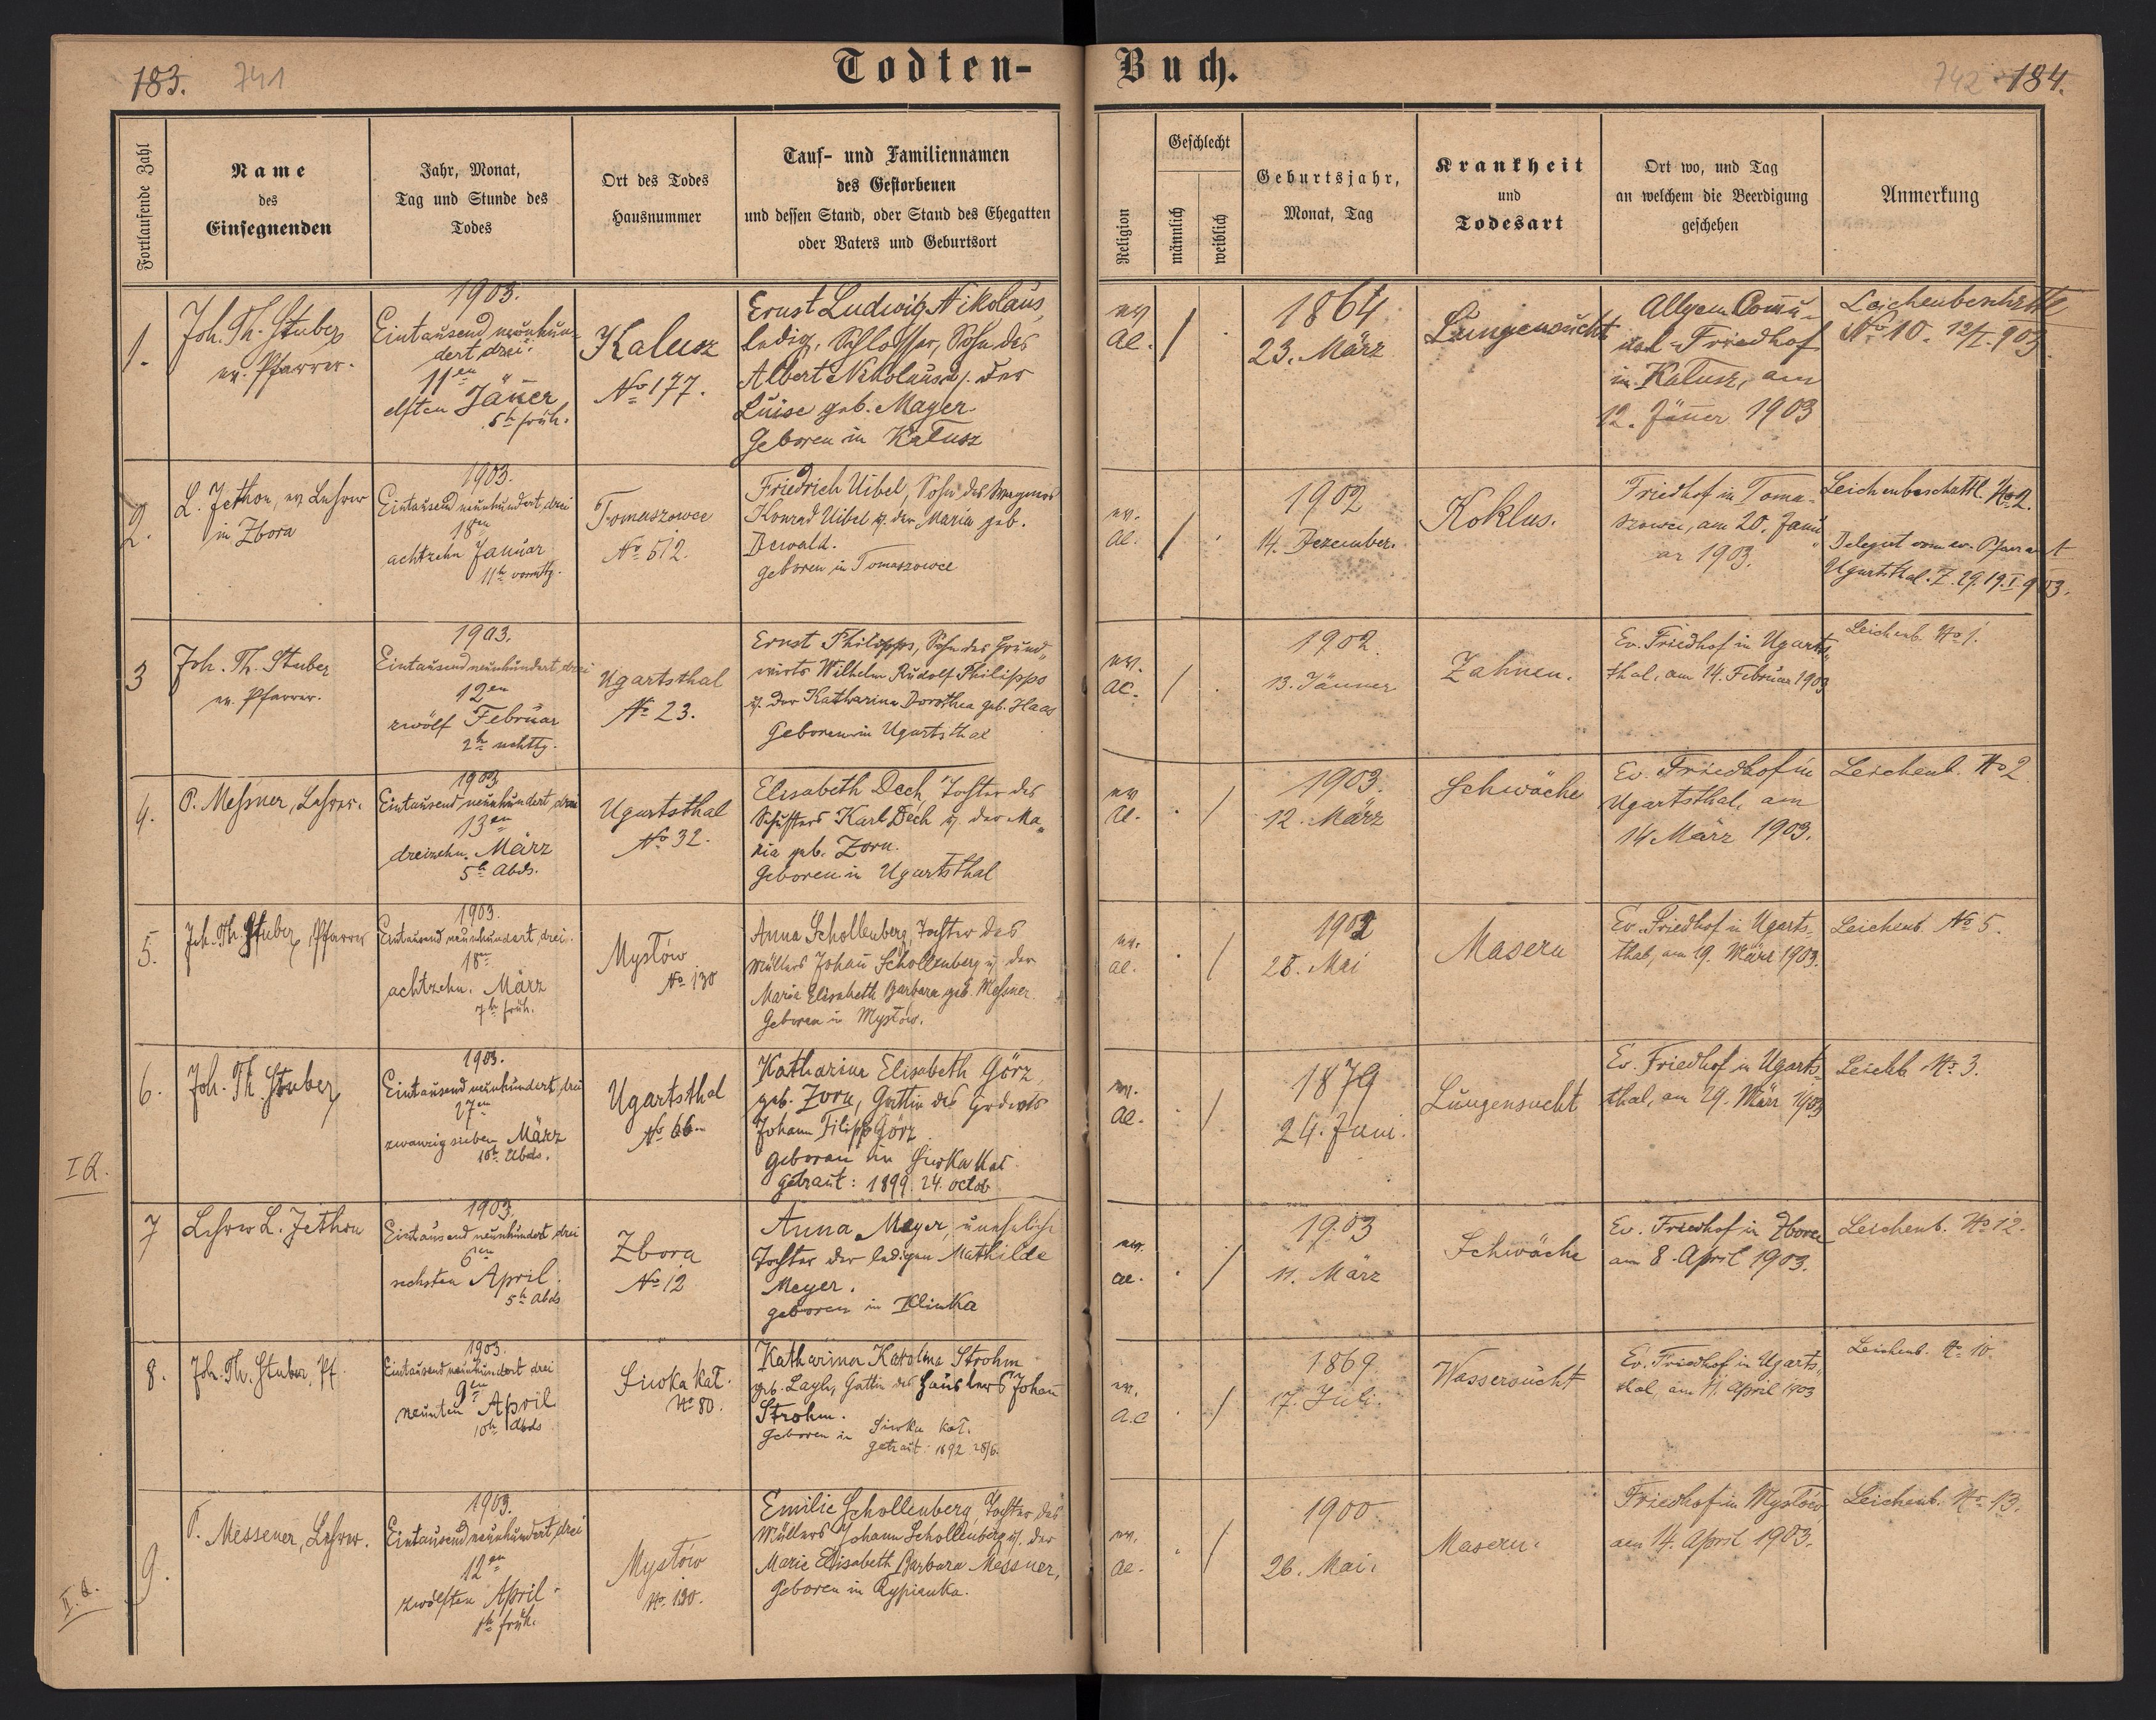 183. 741
Todten-
Fortlaufende Zahl
Name
des
Einsegnenden
Jahr, Monat,
Tag und Stunde des
Todes
Ort des Todes
Hausnummer
Tauf- und Familiennamen
des Gestorbenen
und dessen Stand, oder Stand des Ehegatten
oder Vaters und Geburtsort
1.
Joh. Th. Stuber
ev. Pfarrer.
1903.
Eintausend neunhun-
dert drei.
11en
elften Jäner
5h früh.
Kalusz
No 177.
Ernst Ludwig Nikolaus,
ledig, Schlosser, Sohn des
Albert Nikolaus u. der
Luise geb. Mayer.
Geboren in Kałusz
2.
L. Jethon, ev. Lehrer
in Zbora
1903.
Eintausend neunhundert drei
18en
achtzehn Januar
11h vormttg.
Tomaszowce
No 512.
Friedrich Uibel, Sohn des Wagners
Konrad Uibel u. der Maria geb.
geboren in Tomaszowce
3
Joh. Th. Stuber
ev. Pfarrer.
1903.
Eintausend neunhundert, drei
12en
zwölf Februar
2h nchttg.
Ugartsthal
No 23.
Ernst Philipps, Sohn des Grund-
wirts Wilhelm Rudolf Philipps
u. der Katharina Dorothea geb. Haas
Geboren in Ugartsthal
4.
P. Meßner, Lehrer.
1903
Eintausend neunhundert, drei
13en
dreizehn. März
5h Abds.
Ugartsthal
No 32.
Elisabeth Dech, Tochter des
Schusters Karl Dech u. der Ma-
ria geb. Zorn.
Geboren in Ugartsthal
5.
Joh. Th. Stuber, Pfarrer
1903.
Eintausend neunhundert, drei.
18en
achtzehn. März
7h früh.
Mysłów
No 130
Anna Schollenberg, Tochter des
Müllers Johann Schollenberg u. der
Maria Elisabeth Barbara geb. Meßner.
Geboren in Mysłów.
6.
Joh. Th. Stuber
1903.
Eintausend neunhundert, drei
27en
zwanzig sieben März
10h Abds.
Ugartsthal
No 66.
Katharina Elisabeth Görz,
geb. Zorn, Gattin des Grdwts
Johann Filipp Görz
geboren in Siwka Kał.
getraut: 1899. 24. octob
I Q.
7
Lehrer L. Jethon
1903.
Eintausend neunhundert drei
6en
sechsten April.
5h Abds
Zbora
No 12
Anna Meyer, uneheliche
Tochter der ledigen Mathilde
Meyer.
geboren in
8.
Joh. Th. Stuber, Pf.
1903.
Eintausend neunhundert drei
9en
neunten April
10h Abds
Siwka kał.
No 80.
Katharina Karolina Strohm
geb. Layh, Gattin des Häuslers Johann
Strohm.
Geboren in Siwka kał.
getraut: 1892 28/6.
II. Q.
9.
P. Messner, Lehrer.
1903.
Eintausend neunhundert, drei
12en
zwölften April.
1h früh.
Mysłów
No. 130.
Emilie Schollenberg, Tochter des
Müllers Johann Schollenberg u. der
Marie Elisabeth Barbara Messner,
Geboren in Rypianka.
Buch.
742 184.
Religion
Geschlecht
männlich
weiblich
Geburtsjahr,
Monat, Tag
Krankheit
und
Todesart
Ort wo, und Tag
an welchem die Beerdigung
geschehen
Anmerkung
ev.
ac. / .
1864
23. März
Lungensucht
Allgem. Comu-
nal-Friedhof
in Kałusz, am
12. Jäner 1903
Leichenbeschttl
No 10. 12/I. 903.
ev.
ac. / .
1902
14. Dezember.
Koklus.
Friedhof in Toma-
szowce, am 20. Janu-
ar 1903.
Leichenbeschttl. No 2.
Delegat vom ev. Pfarramt
Ugartsthal. Z. 29. 19. I 903.
ev.
ac. / .
1902.
13. Jänner
Zahnen.
Ev. Friedhof in Ugarts-
thal, am 14. Februar 1903
Leichenb. No 1.
ev
ac. . /
1903.
12. März
Schwäche
Ev. Friedhof in
Ugartsthal, am
14 März 1903.
Leichenb. No 2
ev.
ac. . /
1902
28. Mai
Masern
Ev. Friedhof in Ugarts-
thal, am 19. März 1903.
Leichenb. No 5.
ev.
ac. . /
1879
24. Juni.
Lungensucht
Ev. Friedhof in Ugarts-
thal, am 29. März 1903
Leichb No 3.
ev.
ac. . /
1903
11. März
Schwäche
Ev. Friedhof in Zbora
am 8. April 1903.
Leichenb. No 12.
ev.
a.c . /
1869.
17. Juli.
Wassersucht
Ev. Friedhof in Ugarts-
thal, am 11. April 1903
Leichenb. No 10.
ev.
ac. . /
1900
26. Mai.
Masern.
Friedhof in Mysłów
am 14. April 1903.
Leichenb. No 13.